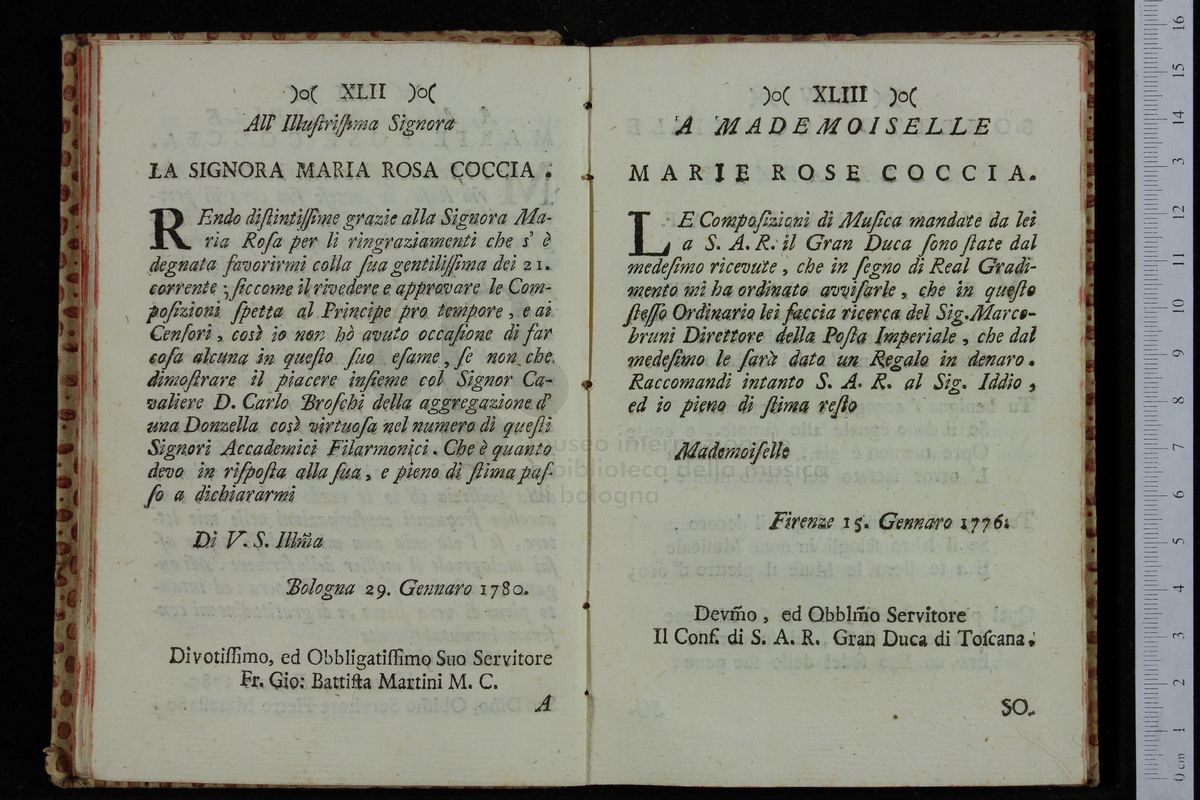 )o( XLII )o(
All' Illuſtriſſima Signora
LA SIGNORA MARIA ROSA COCCIA.
REndo diſtintiſſime grazie alla Signora Ma-
ria Roſa per li ringraziamenti che s' è
degnata favorirmi colla ſua gentiliſſima dei 21.
corrente; ſiccome il rivedere e approvare le Com-
poſizioni ſpetta al Principe pro tempore, e ai
Cenſori, così io non hò avuto occaſione di far
coſa alcuna in queſto ſuo eſame, ſe non che
dimoſtrare il piacere inſieme col Signor Ca-
valiere D. Carlo Broſchi della aggregazione d'
una Donzella così virtuoſa nel numero di queſti
Signori Accademici Filarmonici. Che è quanto
devo in riſpoſta alla ſua, e pieno di ſtima paſ-
ſo a dichiararmi
Di V. S. Illm̃a
Bologna 29. Gennaro 1780.
Divotiſſimo, ed Obbligatiſſimo Suo Servitore
Fr. Gio: Battiſta Martini M. C.
A
)o( XLIII )o(
'A MADEMOISELLE
MARIE ROSE COCCIA.
LE Compoſizioni di Muſica mandate da lei
a S. A. R. il Gran Duca ſono ſtate dal
medeſimo ricevute, che in ſegno di Real Gradi-
mento mi ha ordinato avviſarle, che in queſto
ſteſſo Ordinario lei faccia ricerca del Sig. Marco-
bruni Direttore della Poſta Imperiale, che dal
medeſimo le ſarà dato un Regalo in denaro.
Raccomandi intanto S. A. R. al Sig. Iddio,
ed io pieno di ſtima reſto
Mademoiſelle
Firenze 15. Gennaro 1776.
Devm̃o, ed Obblm̃o Servitore
Il Conſ. di S. A. R. Gran Duca di Toſcana.
SO.
museo internazionale
biblioteca della musica
bologna
0 cm 1 2 3 4 5 6 7 8 9 10 11 12 13 14 15 16